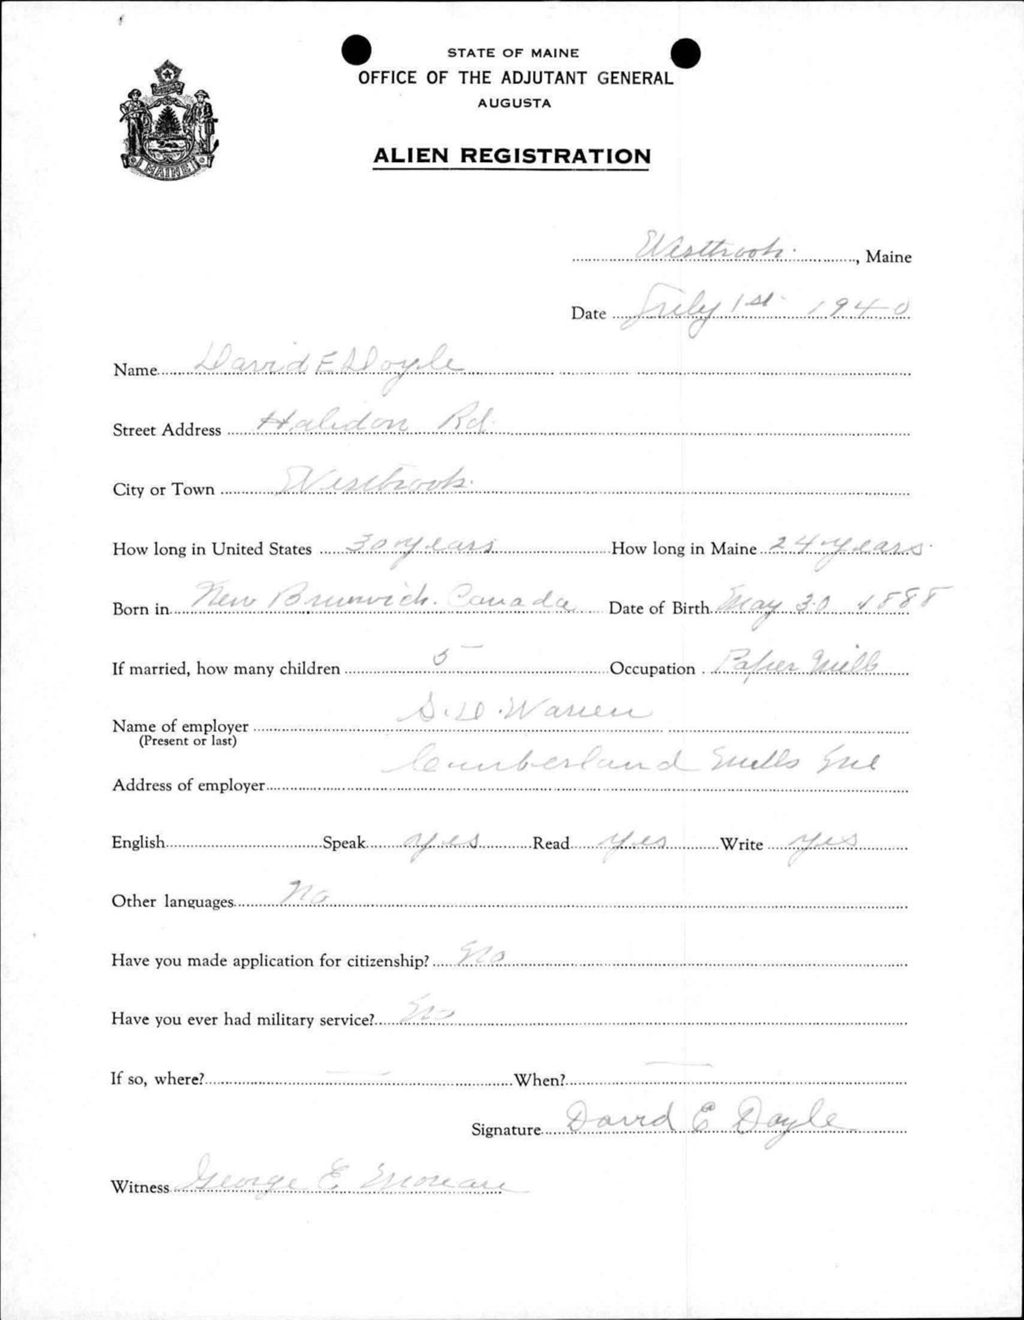 STATE OF MAINE
OFFICE OF THE ADJUTANT GENERAL
AUGUSTA
ALIEN REGISTRATION
MAINE
Westbrook, Maine
Date July 1st 1940
Name David E Doyle
Street Address Halidon Rd.
City or Town Westbrook.
How long in United States 30 years How long in Maine 24 years
Born in New Brunswick. Canada Date of Birth May 30 1888
If married, how many children 5 Occupation Paper Mill
Name of employer S.D. Warren
(Present or last)
Address of employer Cumberland Mills Me
English Speak yes Read yes Write yes
Other languages No
Have you made application for citizenship? No
Have you ever had military service? No
If so, where? — When? —
Signature David E Doyle
Witness George E Moreau